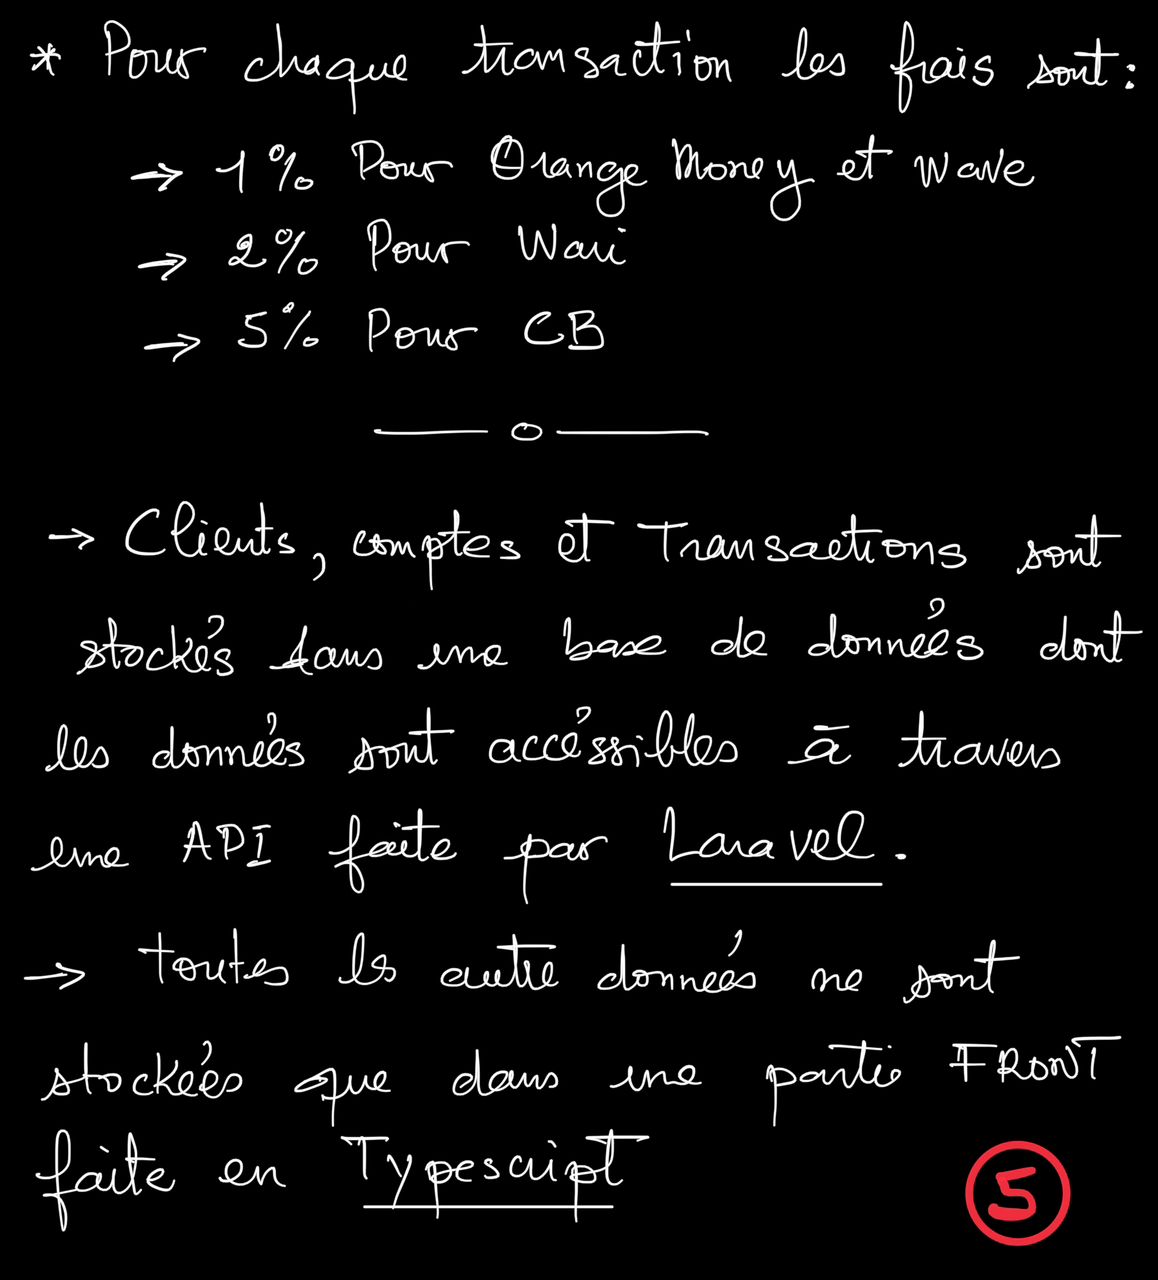 * Pour chaque transaction les frais sont :
→ 1% Pour Orange Money et Wave
→ 2% Pour Wari
→ 5% Pour CB
→ Clients, comptes et Transactions sont
stockés dans une base de données dont
les données sont accéssibles à travers
une API faite par Laravel.
→ toutes les autre données ne sont
stockées que dans une partie FRONT
faite en Typescript
5